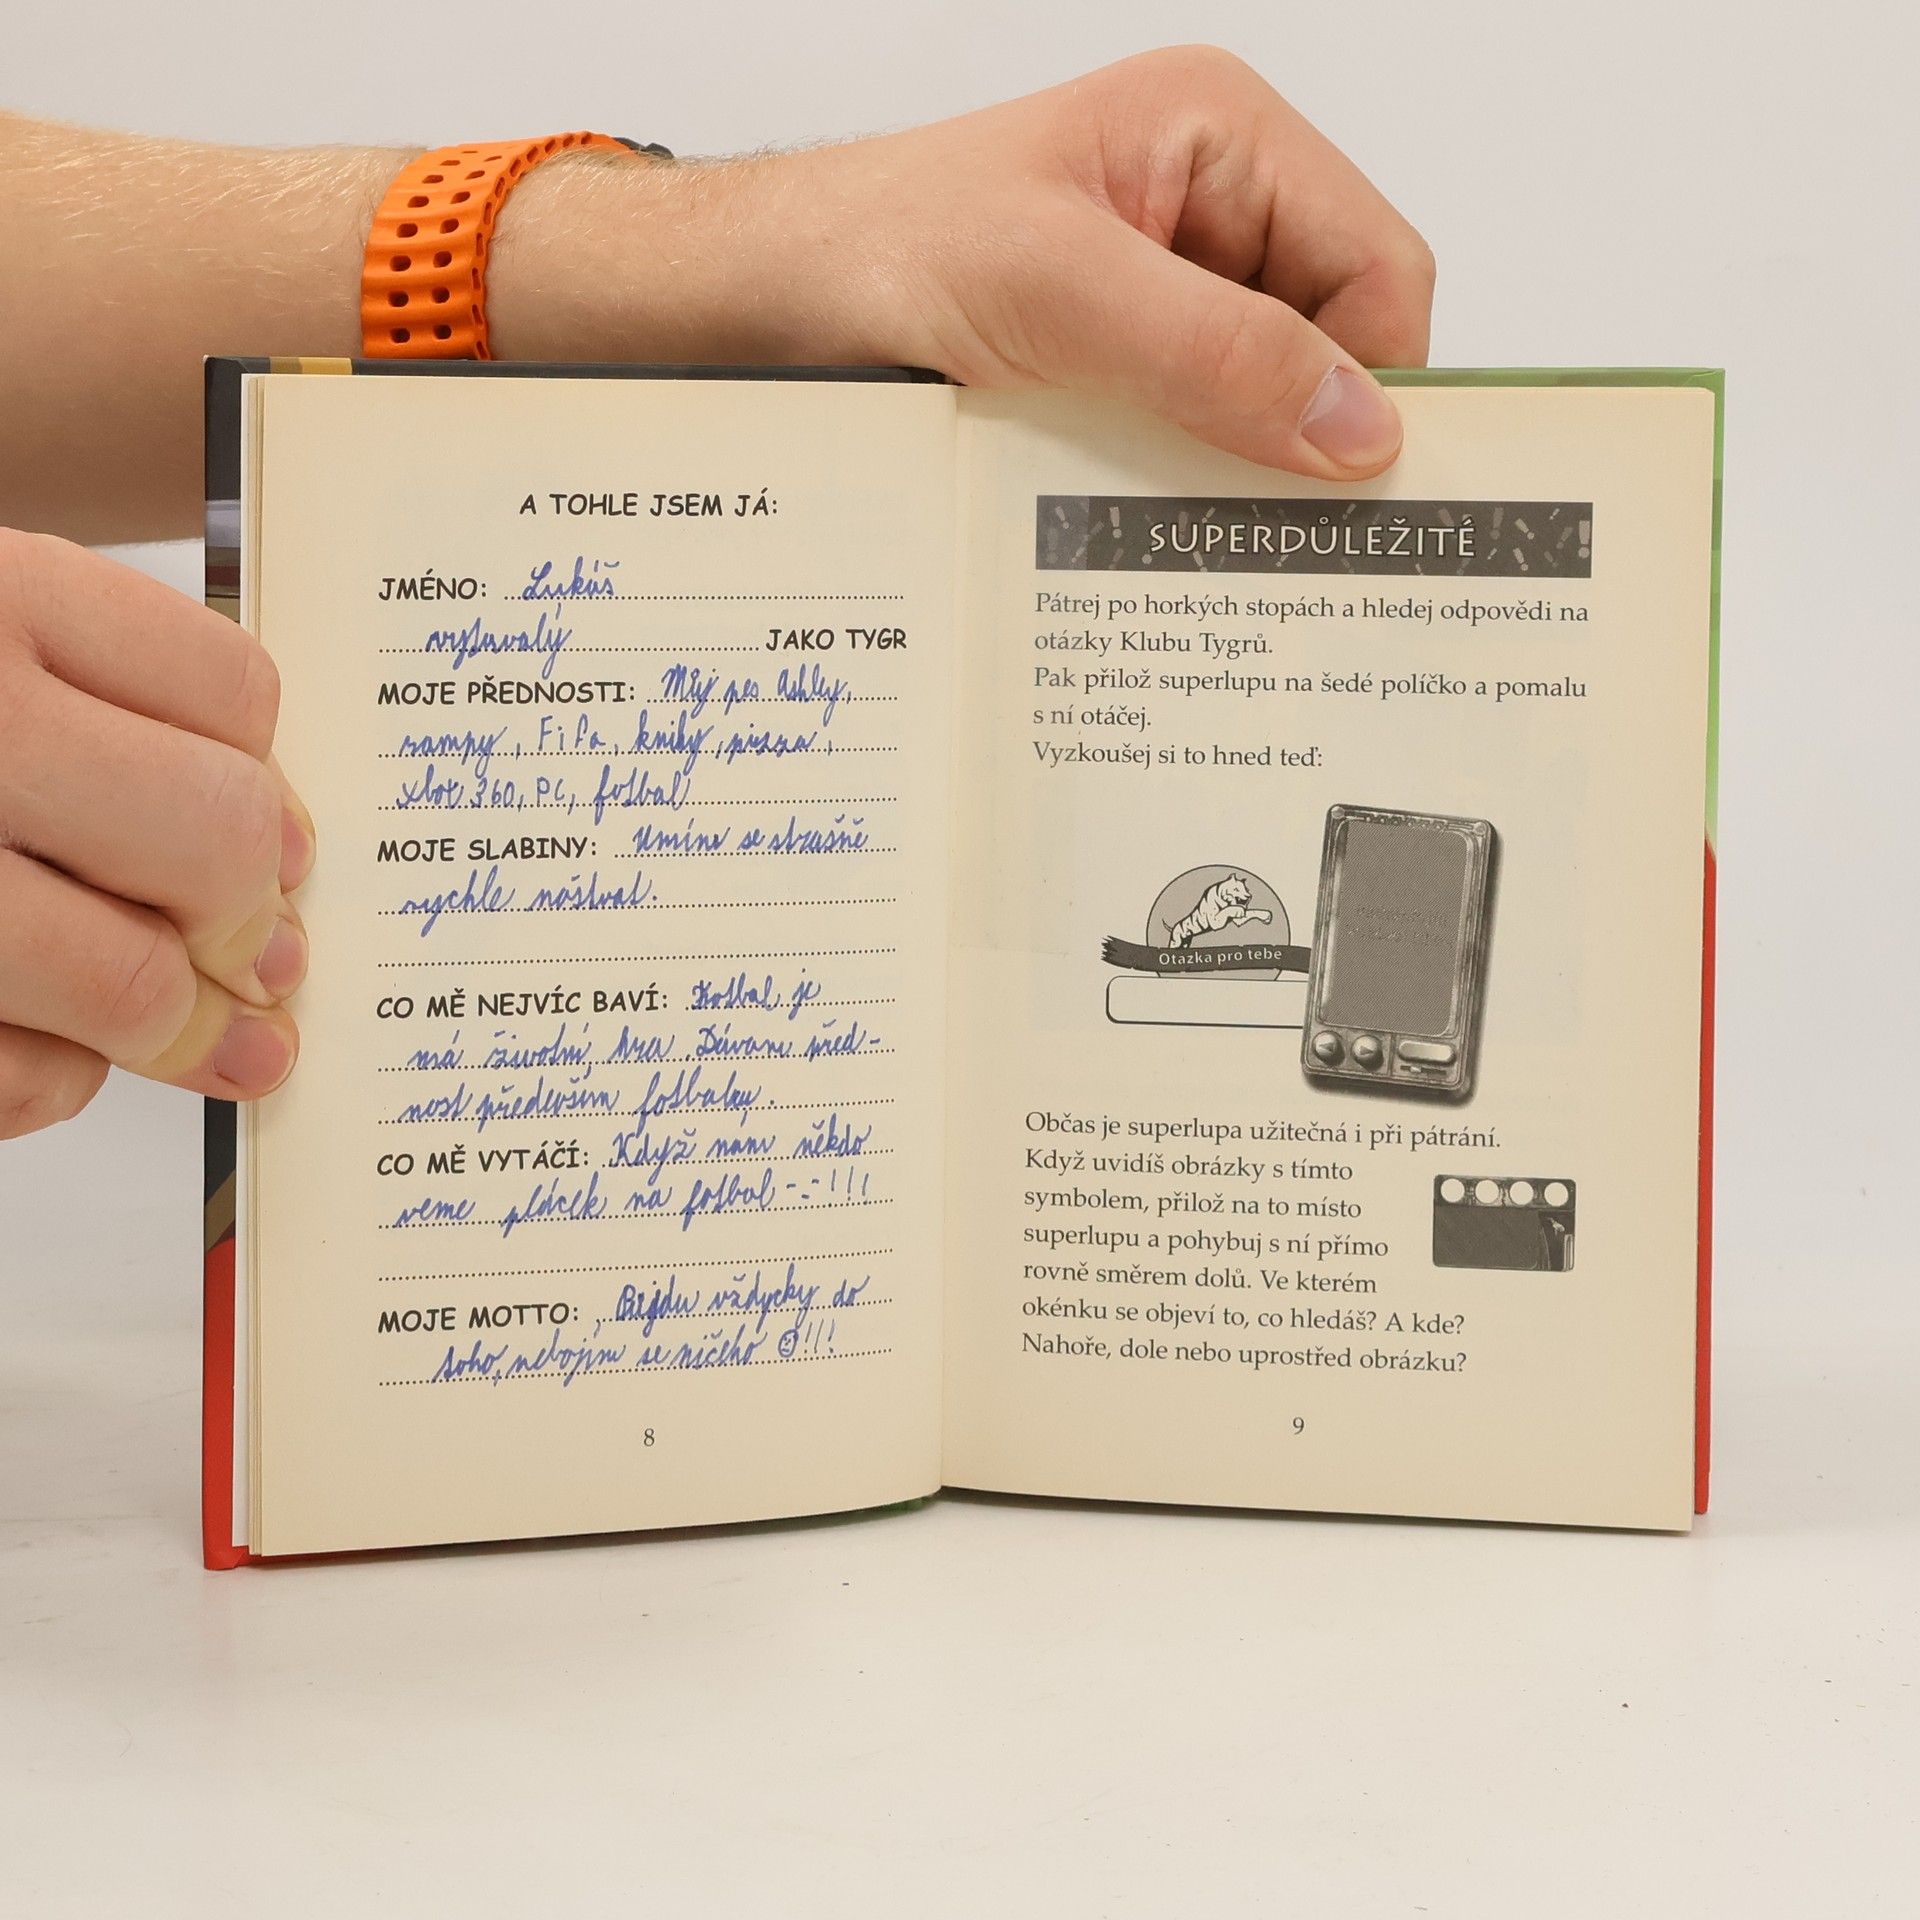 A TOHLE JSEM JÁ:
JMÉNO: Lukáš
vytrvalý JAKO TYGR
MOJE PŘEDNOSTI: Můj pes Ashley,
rampy, FiFa, knihy, pizza,
xbox 360, PC, fotbal
MOJE SLABINY: Umíne se strašně
rychle naštvat.
CO MĚ NEJVÍC BAVÍ: Fotbal je
má životní hra Dávam před-
nost především fotbalu.
CO MĚ VYTÁČÍ: Když nám někdo
veme plácek na fotbal -.-!!!
MOJE MOTTO: vždycky do
toho, nebojím se ničeho ☺!!!
8
SUPERDŮLEŽITÉ
Pátrej po horkých stopách a hledej odpovědi na
otázky Klubu Tygrů.
Pak přilož superlupu na šedé políčko a pomalu
s ní otáčej.
Vyzkoušej si to hned teď:
Otazka pro tebe
Občas je superlupa užitečná i při pátrání.
Když uvidíš obrázky s tímto
symbolem, přilož na to místo
superlupu a pohybuj s ní přímo
rovně směrem dolů. Ve kterém
okénku se objeví to, co hledáš? A kde?
Nahoře, dole nebo uprostřed obrázku?
9